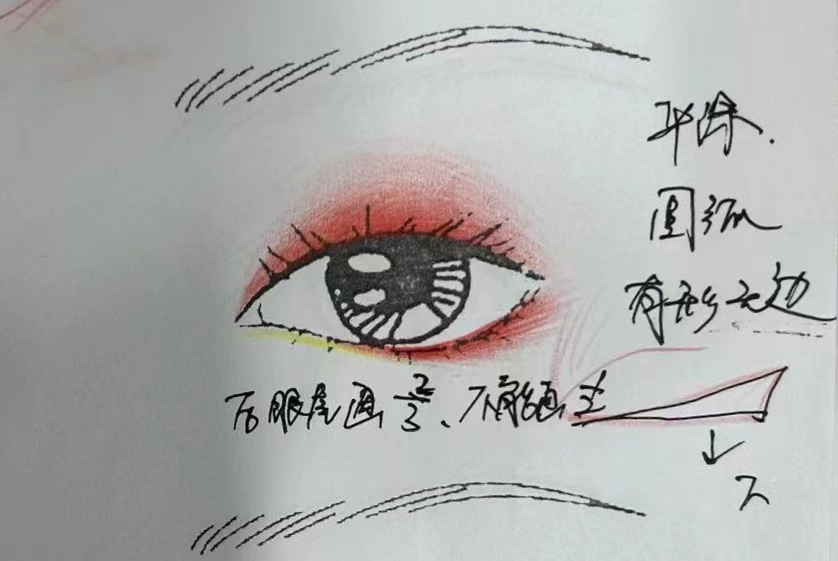 平涂.
圆弧
有形无边
后眼尾画2/3、不能画